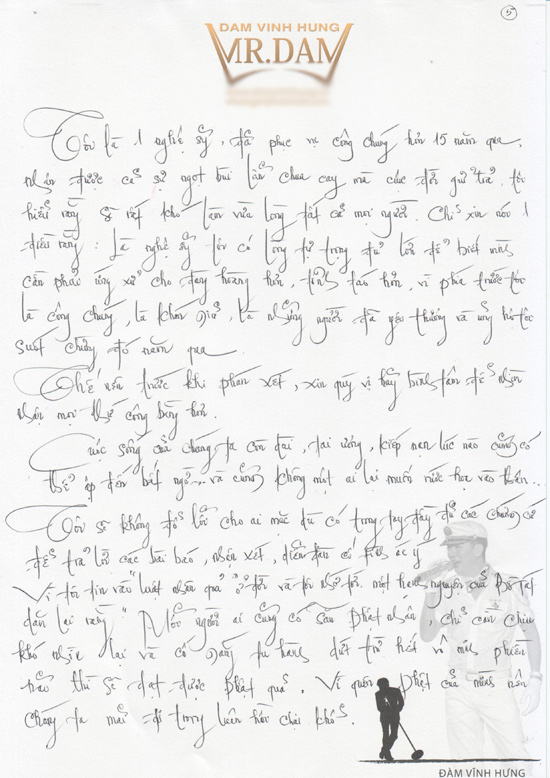 5
DAM VINH HUNG
MR.DAM
Tôi là 1 nghệ sỹ, đã phục vụ công chúng hơn 15 năm qua,
nhận được cả sự ngọt bùi lẫn chua cay mà cuộc đời gửi trả. tôi
hiểu rằng sẽ rất khó làm vừa lòng tất cả mọi người. Chỉ xin nói 1
điều rằng: Là nghệ sỹ tôi có lòng tự trọng đủ lớn để biết mình
cần phải ứng xử cho đàng hoàng hơn, tỉnh táo hơn, vì phía trước tôi
là công chúng, là khán giả, là những người đã yêu thương và ủng hộ tôi
suốt chừng đó năm qua.
Thế nên trước khi phán xét, xin quý vị hãy bình tâm để nhìn
nhận mọi thứ công bằng hơn.
Cuộc sống của chúng ta còn dài, tai ương, kiếp nạn lúc nào cũng có
thể ập đến bất ngờ... và cũng không một ai lại muốn rước họa vào thân...
Tôi sẽ không đổ lỗi cho ai mặc dù có trong tay đầy đủ các chứng cứ
để trả lời các bài báo, nhận xét, diễn đàn cố tình ác ý
Vì tôi tin vào "luật nhân quả" ở đời và tôi nhớ tới một hạnh nguyện của Bồ Tát
dặn lại rằng "Mỗi người ai cũng có sẵn Phật nhân, chỉ cần chịu
khó nhìn lại và cố gắng tu hành dứt trừ hết vô minh phiền
não thì sẽ đạt được Phật quả. Vì quên Phật của mình nên
chúng ta mãi đi trong luân hồi chịu khổ.
ĐÀM VĨNH HƯNG